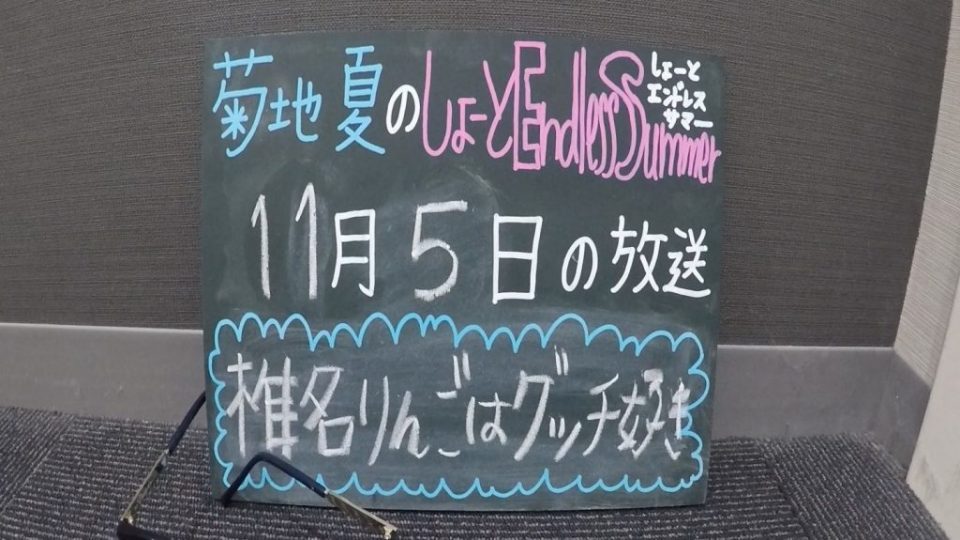 菊地夏のしょーとEndlessSummer
しょーと
エンドレス
サマー
11月5日の放送
椎名りんごはグッチ好き